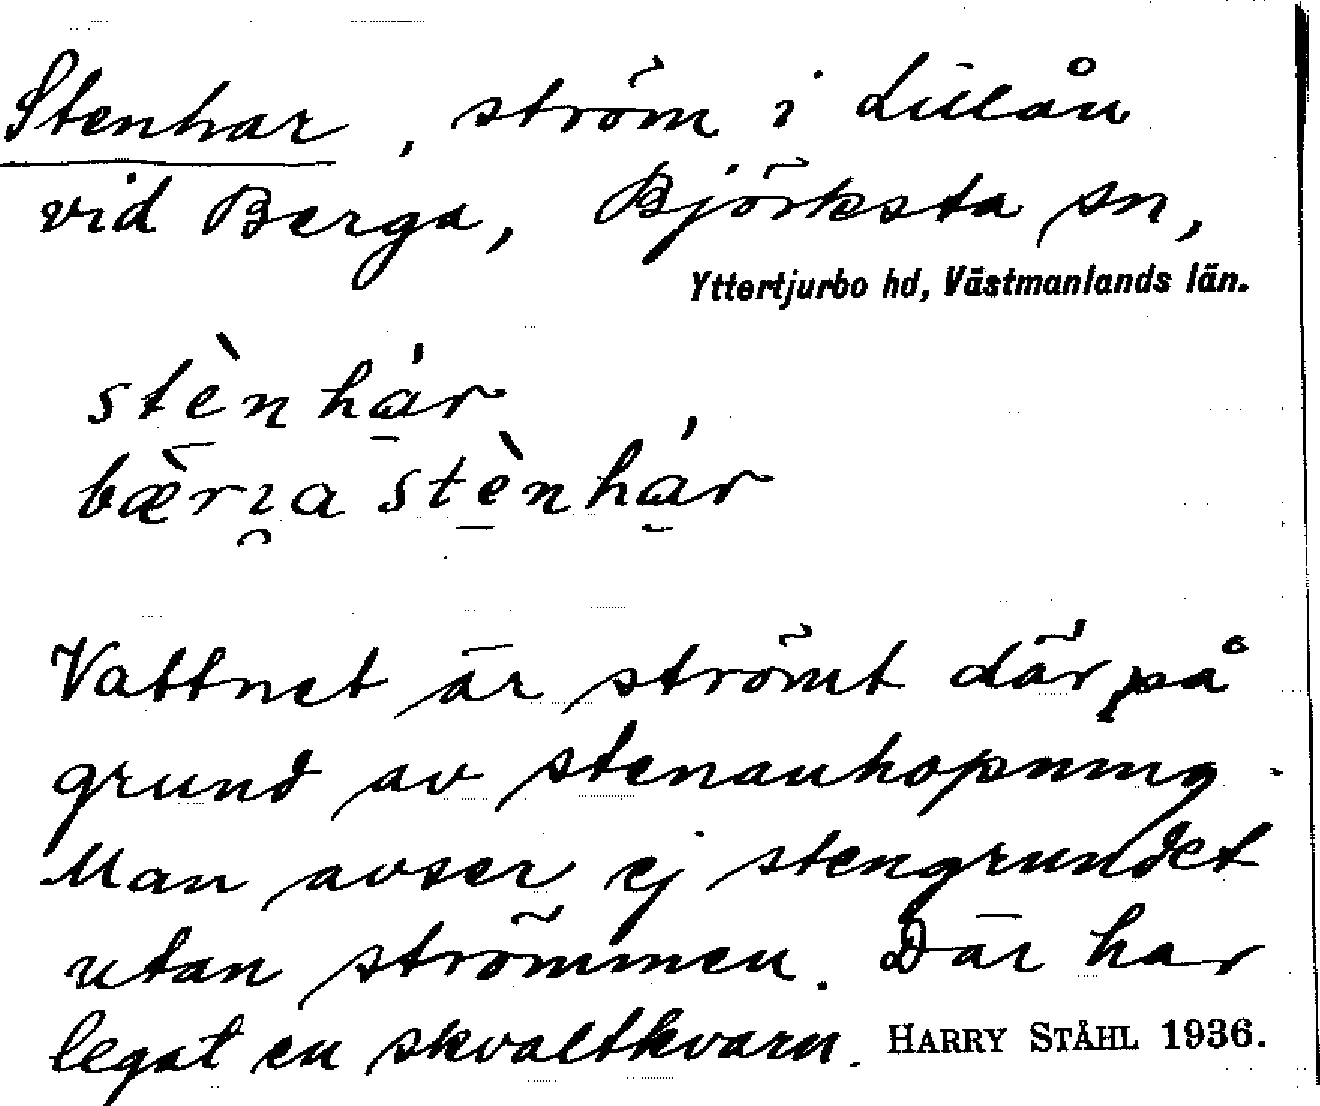 Stenhar, ström i Lillån
vid Berga, Björksta sn,
Yttertjurbo hd, Västmanlands län.
stènhár
stènhár
Vattnet är strömt där på
grund av stenanhopning.
Man avser ej stengrundet
utan strömmen. Där har
legat en skvaltkvarn. HARRY STÅHL 1936.